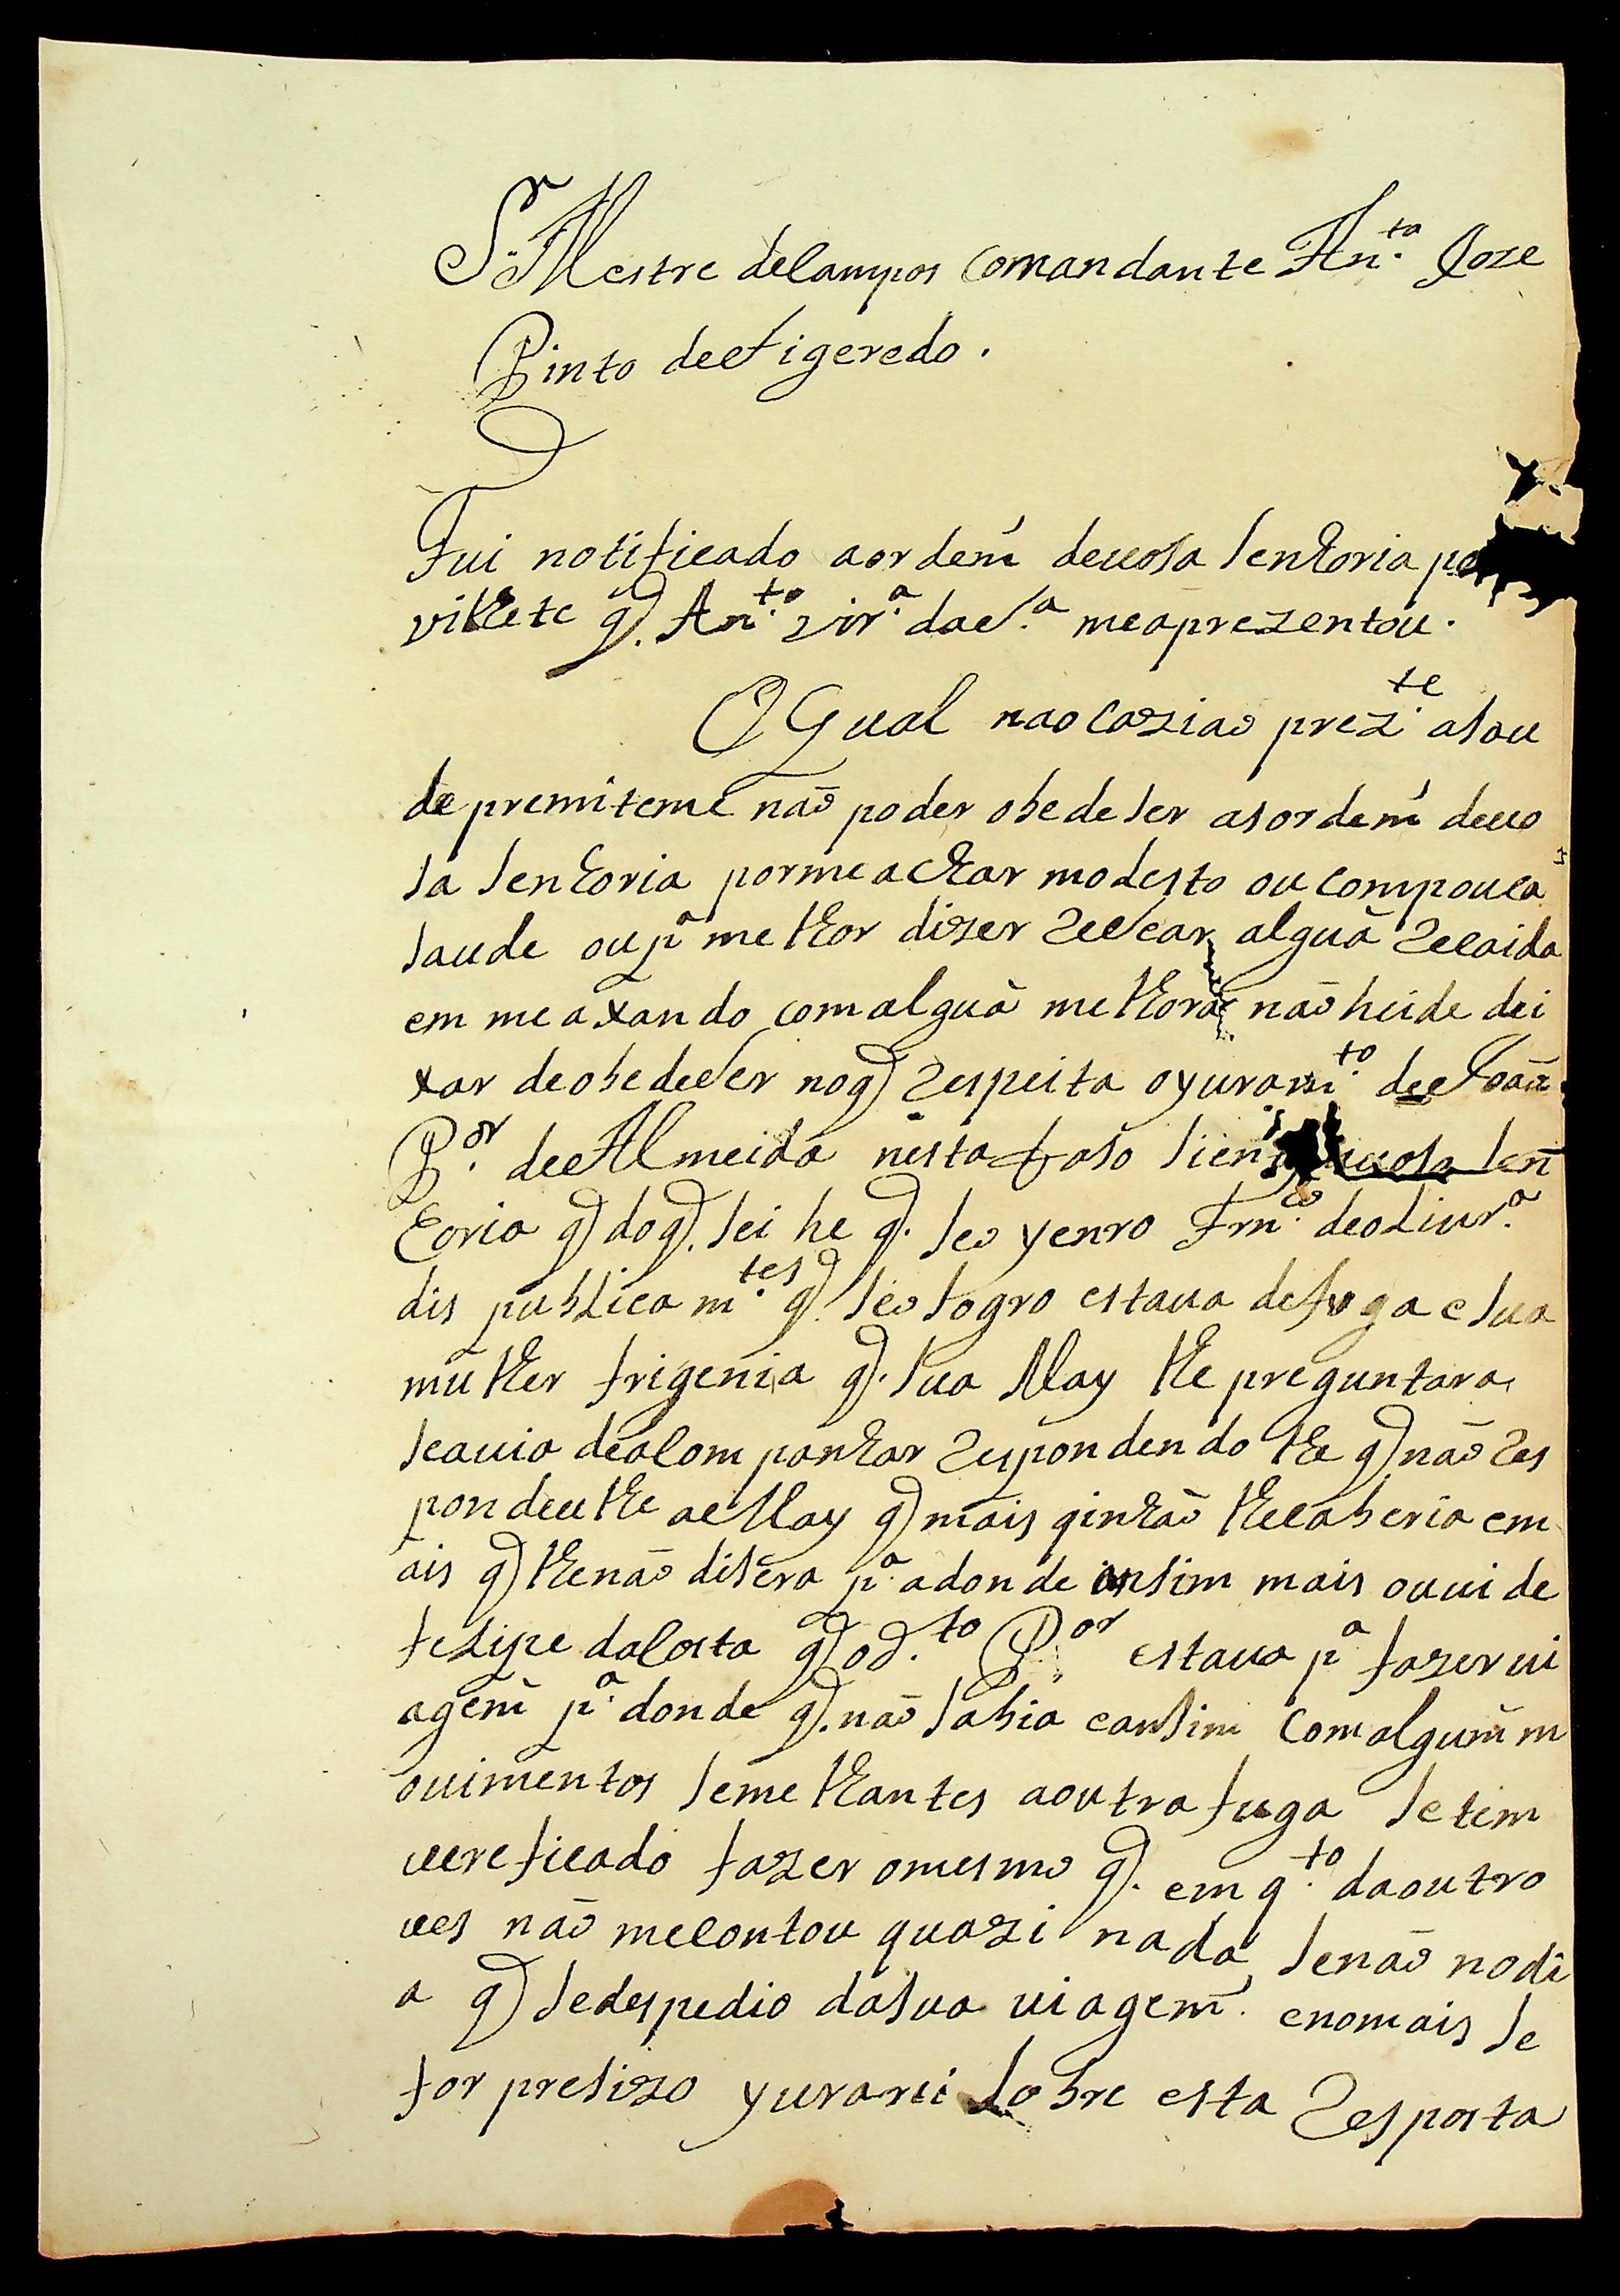 Sr. Mestre deCampos Comandante Anto. Joze
Pinto deFigeredo.
Fui notificado aordem devosa Senhoria
vilhete q. Anto. vira. daSa. meaprezentou.
O Qual naocaziao prezte. asau
de premiteme não poder obedeser asordem devo
sa Senhoria pormeachar molesto oucompouca
saude oupa melhor dizer Recear alguã Recaida
em meaxando comalguã melhora não heide dei
xar deobedeSer noq Respeita oyuramto. de Joaõ
Por. deAlmeida nesta faso sien vosa Sen
horia q doq. sei he q. seo yenro Frnco. deoLivra.
dis publicamtes. q. seo sogro estava defoga esua
mulher Frigenia q. sua May lhe preguntara
seavia deacompanhar Respondendo lhe q não Res
pondeu lhe aMay q mais qinhão lhecaberia em
ais q lhenão disera pa. adonde ansim mais ouvi de
feLipe daCosta q odto. Por. estava pa fazer vi
agem pa. donde q. não sabia eansim Comalgum m
ovimentos semelhantes aoutra fuga setem
vereficado fazer omesmo q. em qto. daoutro
ves não mecontou quazi nada, senão nodi
a q sedespedio dasua viagem. enomais se
for presizo yurarei sobre esta Resposta